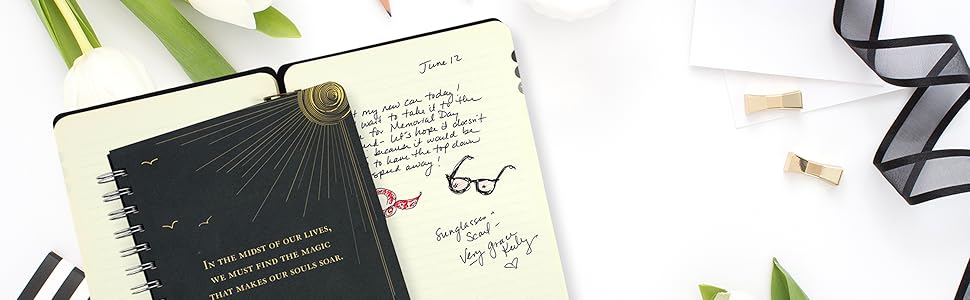 June 12
my new car today!
want to take it to the
for Memorial Day
- let's hope it doesn't
because it would be
to have the top down
speed away!
Sunglasses -
Scarf -
Very grace
Kelly
IN THE MIDST OF OUR LIVES,
WE MUST FIND THE MAGIC
THAT MAKES OUR SOULS SOAR.